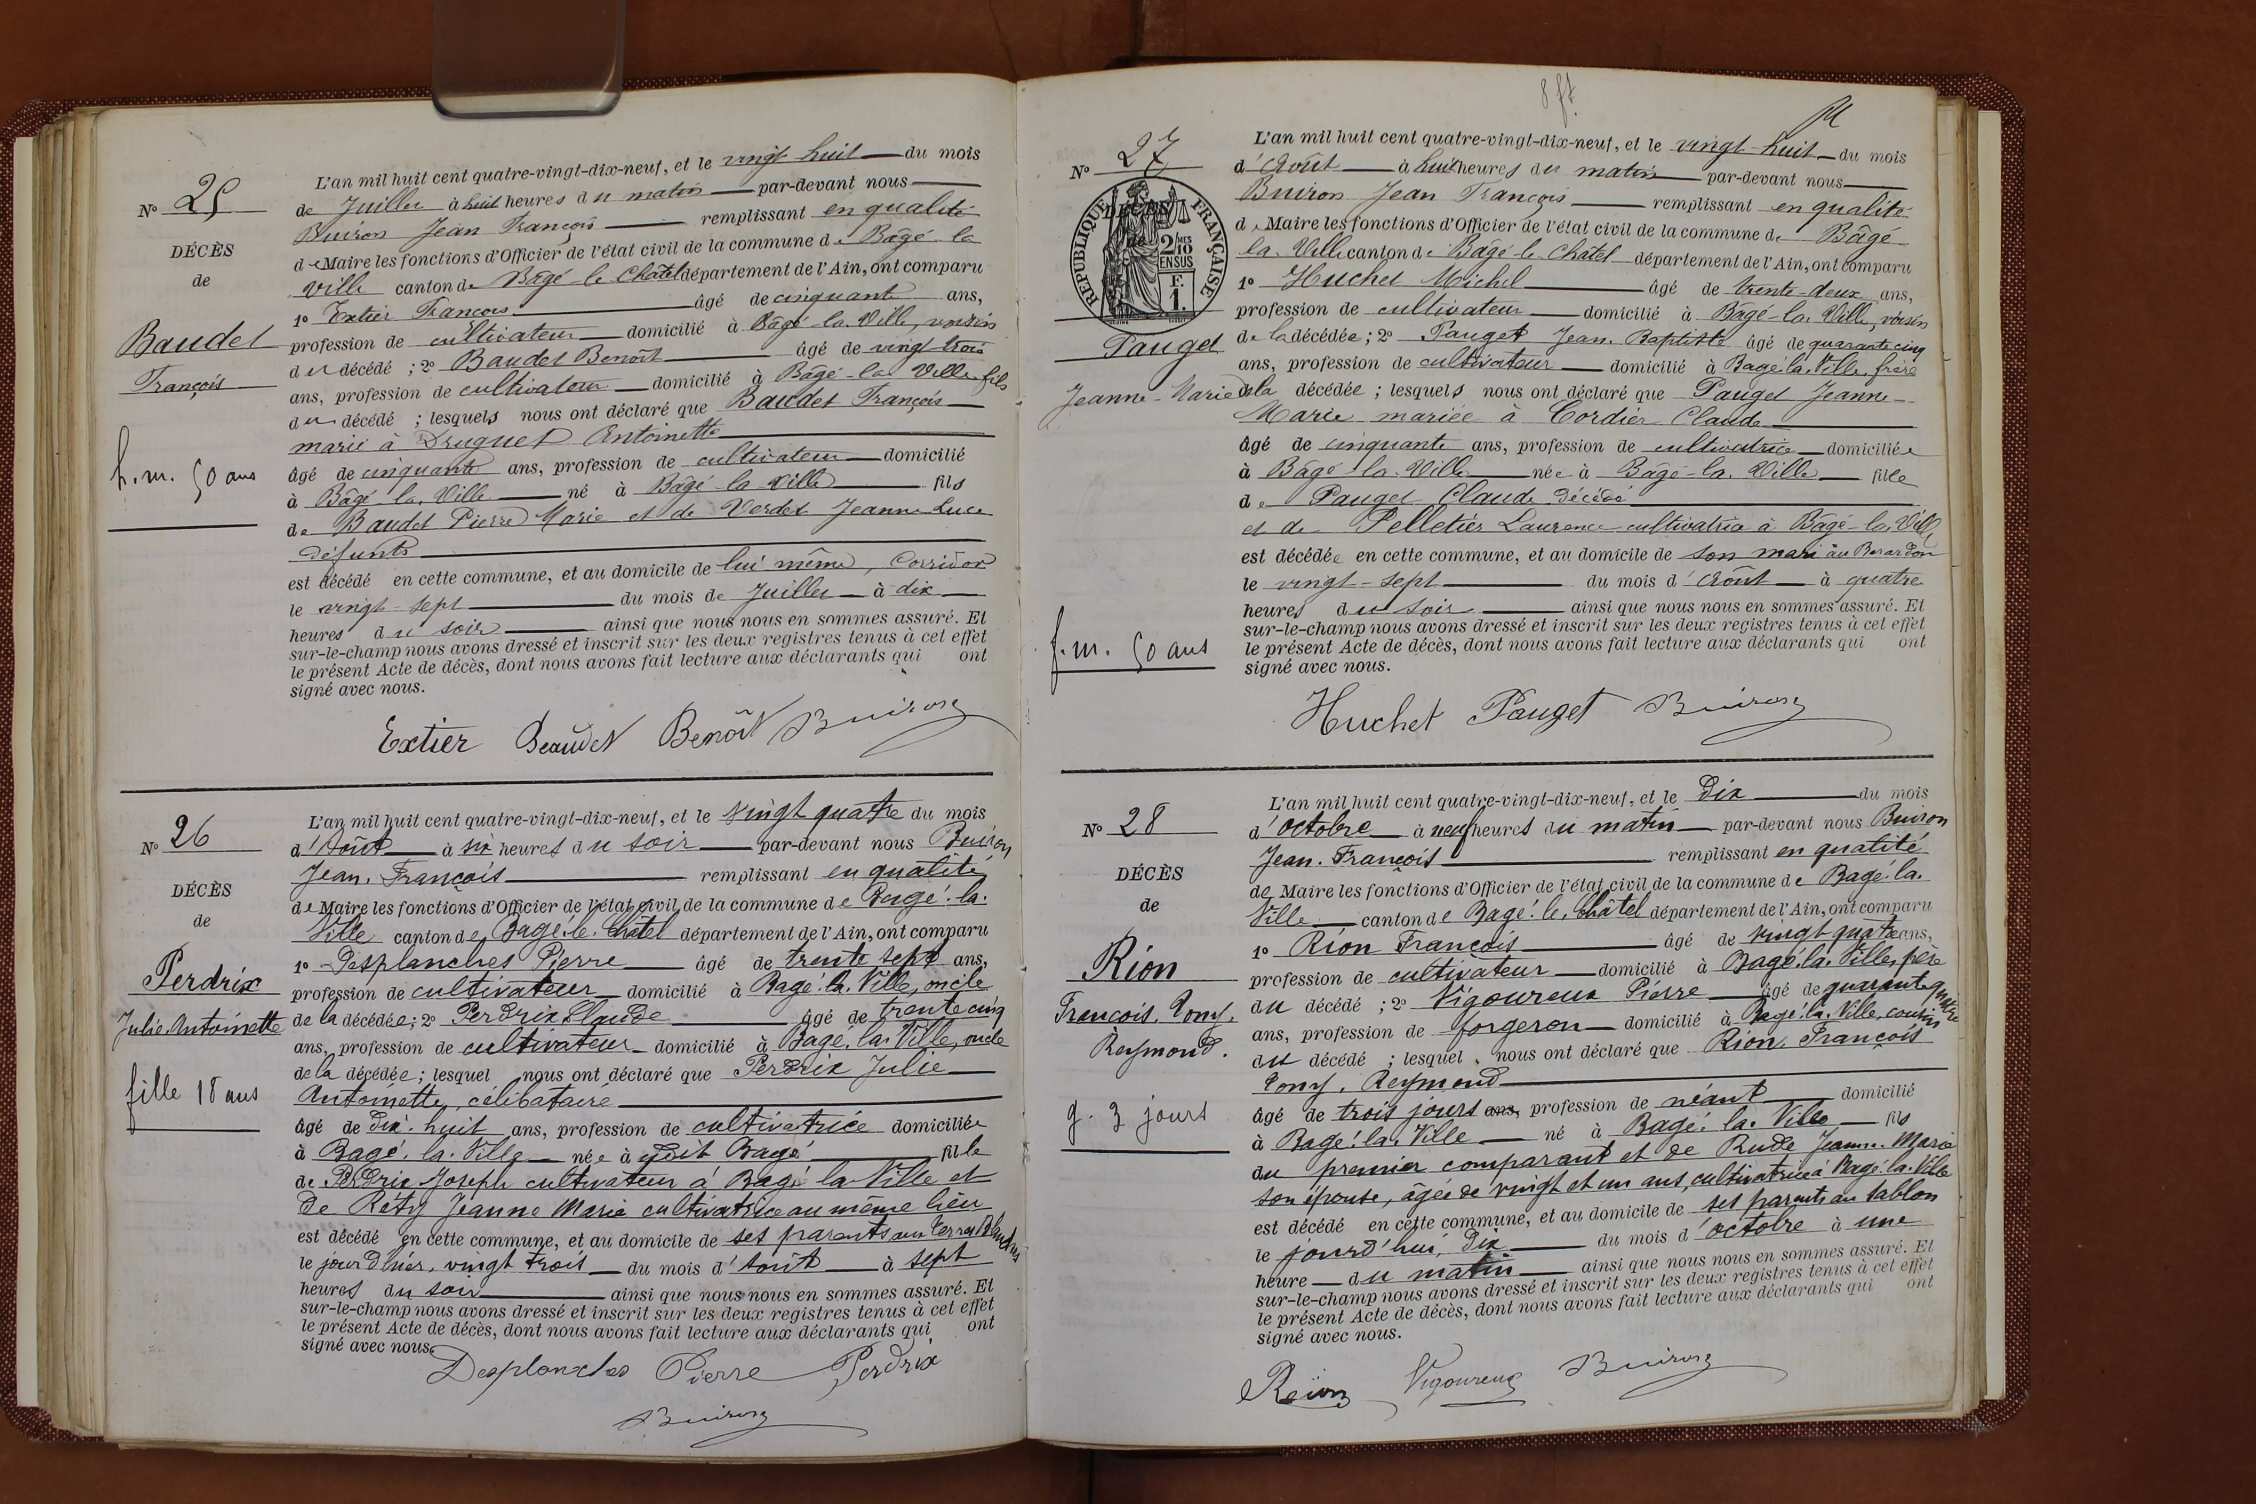 N° 25
DÉCÈS
de
Baudet
François
h. m. 50 ans
L'an mil huit cent quatre-vingt-dix-neuf, et le vingt huit du mois
de Juillet à huit heures du matin par-devant nous
Buiron Jean François remplissant en qualité
de Maire les fonctions d'Officier de l'état civil de la commune de Bâgé-la
ville canton de Bâgé-le-Châtel département de l'Ain, ont comparu
1° Extier François âgé de cinquante ans,
profession de cultivateur domicilié à Bâgé-la-Ville, voisin
du décédé ; 2° Baudet Benoît âgé de vingt trois
ans, profession de cultivateur domicilié à Bâgé-la-Ville fils
du décédé ; lesquels nous ont déclaré que Baudet François
marié à Druguet Antoinette
âgé de cinquante ans, profession de cultivateur domicilié
à Bâgé-la-Ville né à Bâgé-la-Ville fils
de Baudet Pierre Marie et de Verdet Jeanne Luce
défunts
est décédé en cette commune, et au domicile de lui même, Corridor
le vingt-sept du mois de Juillet à dix
heures du soir ainsi que nous nous en sommes assuré. Et
sur-le-champ nous avons dressé et inscrit sur les deux registres tenus à cet effet
le présent Acte de décès, dont nous avons fait lecture aux déclarants qui ont
signé avec nous.
Extier Beaudet Benoît Buiron
N° 26
DÉCÈS
de
Perdrix
Julie Antoinette
fille 18 ans
L'an mil huit cent quatre-vingt-dix-neuf, et le vingt quatre du mois
d'Août à six heures du soir par-devant nous Buiron
Jean. François remplissant en qualité
de Maire les fonctions d'Officier de l'état civil de la commune de Bagé-la-
Ville canton de Bagé-le-Châtel département de l'Ain, ont comparu
1° Desplanches Pierre âgé de trente sept ans,
profession de cultivateur domicilié à Bagé-la-Ville, oncle
de la décédée ; 2° Perdrix Claude âgé de trente cinq
ans, profession de cultivateur domicilié à Bagé-la-Ville, oncle
de la décédée ; lesquel nous ont déclaré que Perdrix Julie
Antoinette, célibataire
âgé de dix-huit ans, profession de cultivatrice domiciliée
à Bagé-la-Ville née à Bagé fille
de Perdrix Joseph cultivateur à Bagé la Ville et
de Réty Jeanne Marie cultivatrice au même lieu
est décédé en cette commune, et au domicile de ses parents aux
le jour d'hier, vingt trois du mois d'Août à sept
heures du soir ainsi que nous nous en sommes assuré. Et
sur-le-champ nous avons dressé et inscrit sur les deux registres tenus à cet effet
le présent Acte de décès, dont nous avons fait lecture aux déclarants qui ont
signé avec nous.
Desplanches Pierre Perdrix
Buiron
8 ft
N° 27
DÉCÈS
de
RÉPUBLIQUE FRANÇAISE
2/10 MES
EN SUS
F.
1
Pauget
Jeanne-Marie
f. m. 50 ans
L'an mil huit cent quatre-vingt-dix-neuf, et le vingt-huit du mois
d'Août à huit heures du matin par-devant nous
Buiron Jean François remplissant en qualité
de Maire les fonctions d'Officier de l'état civil de la commune de Bâgé
la-Ville canton de Bâgé-le-Châtel département de l'Ain, ont comparu
1° Huchet Michel âgé de trente-deux ans,
profession de cultivateur domicilié à Bâgé-la-Ville, voisin
de la décédée ; 2° Pauget Jean-Baptiste âgé de quarante cinq
ans, profession de cultivateur domicilié à Bagé la Ville, frère
de la décédée ; lesquels nous ont déclaré que Pauget Jeanne-
Marie mariée à Cordier Claude
âgé de cinquante ans, profession de cultivatrice domiciliée
à Bâgé-la-Ville née à Bâgé-la-Ville fille
de Pauget Claude décédé
et de Pelletier Laurence cultivatrice à Bâgé-la-Ville
est décédée en cette commune, et au domicile de son mari au Berardon
le vingt-sept du mois d'Août à quatre
heures du soir ainsi que nous nous en sommes assuré. Et
sur-le-champ nous avons dressé et inscrit sur les deux registres tenus à cet effet
le présent Acte de décès, dont nous avons fait lecture aux déclarants qui ont
signé avec nous.
Huchet Pauget Buiron
N° 28
DÉCÈS
de
Rion
François. Tony.
Reymond.
g. 3 jours
L'an mil huit cent quatre-vingt-dix-neuf, et le Dix du mois
d'octobre à neuf heures du matin par-devant nous Buiron
Jean. François remplissant en qualité
de Maire les fonctions d'Officier de l'état civil de la commune de Bagé-la-
Ville canton de Bagé-le-Châtel département de l'Ain, ont comparu
1° Rion François âgé de vingt quatre ans,
profession de cultivateur domicilié à Bagé-la-Ville, père
du décédé ; 2° Vigoureux Pierre âgé de quarante quatre
ans, profession de forgeron domicilié à Bagé-la-Ville, cousin
du décédé ; lesquel nous ont déclaré que Rion. François
Tony. Reymond
âgé de trois jours ans, profession de néant domicilié
à Bagé-la-Ville né à Bagé-la-Ville fils
du premier comparant et de Rude Jeanne-Marie
son épouse, âgée de vingt et un ans, cultivatrice à Bagé-la-Ville
est décédé en cette commune, et au domicile de ses parents au Sablon
le jourd'hui, dix du mois d'octobre à une
heure du matin ainsi que nous nous en sommes assuré. Et
sur-le-champ nous avons dressé et inscrit sur les deux registres tenus à cet effet
le présent Acte de décès, dont nous avons fait lecture aux déclarants qui ont
signé avec nous.
Reion Vigoureux Buiron